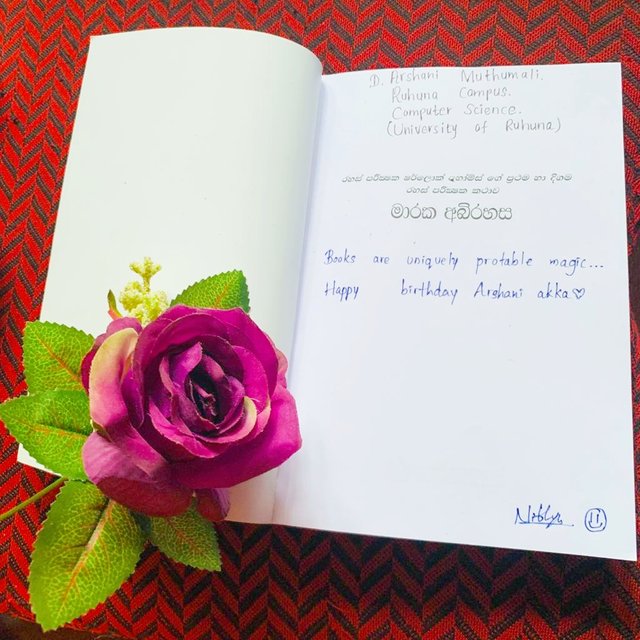 D. Arshani Muthumali.
Ruhuna Campus.
Computer Science.
(University of Ruhuna)
රහස් පරීක්ෂක ෂර්ලොක් හෝම්ස් ගේ ප්‍රථම හා දිගම
රහස් පරීක්ෂක කථාව
මාරක අබිරහස
Books are uniquely protable magic...
Happy birthday Arshani akka♡